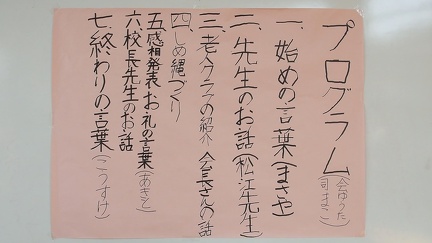 プログラム(会ゆうた
司まこ)
一、始めの言葉(まさや)
二、先生のお話(松江先生)
三、老人クラブの紹介 会長さんの話
四、しめ縄づくり
五、感想発表・お礼の言葉(あきと)
六、校長先生のお話
七、終わりの言葉(こうすけ)